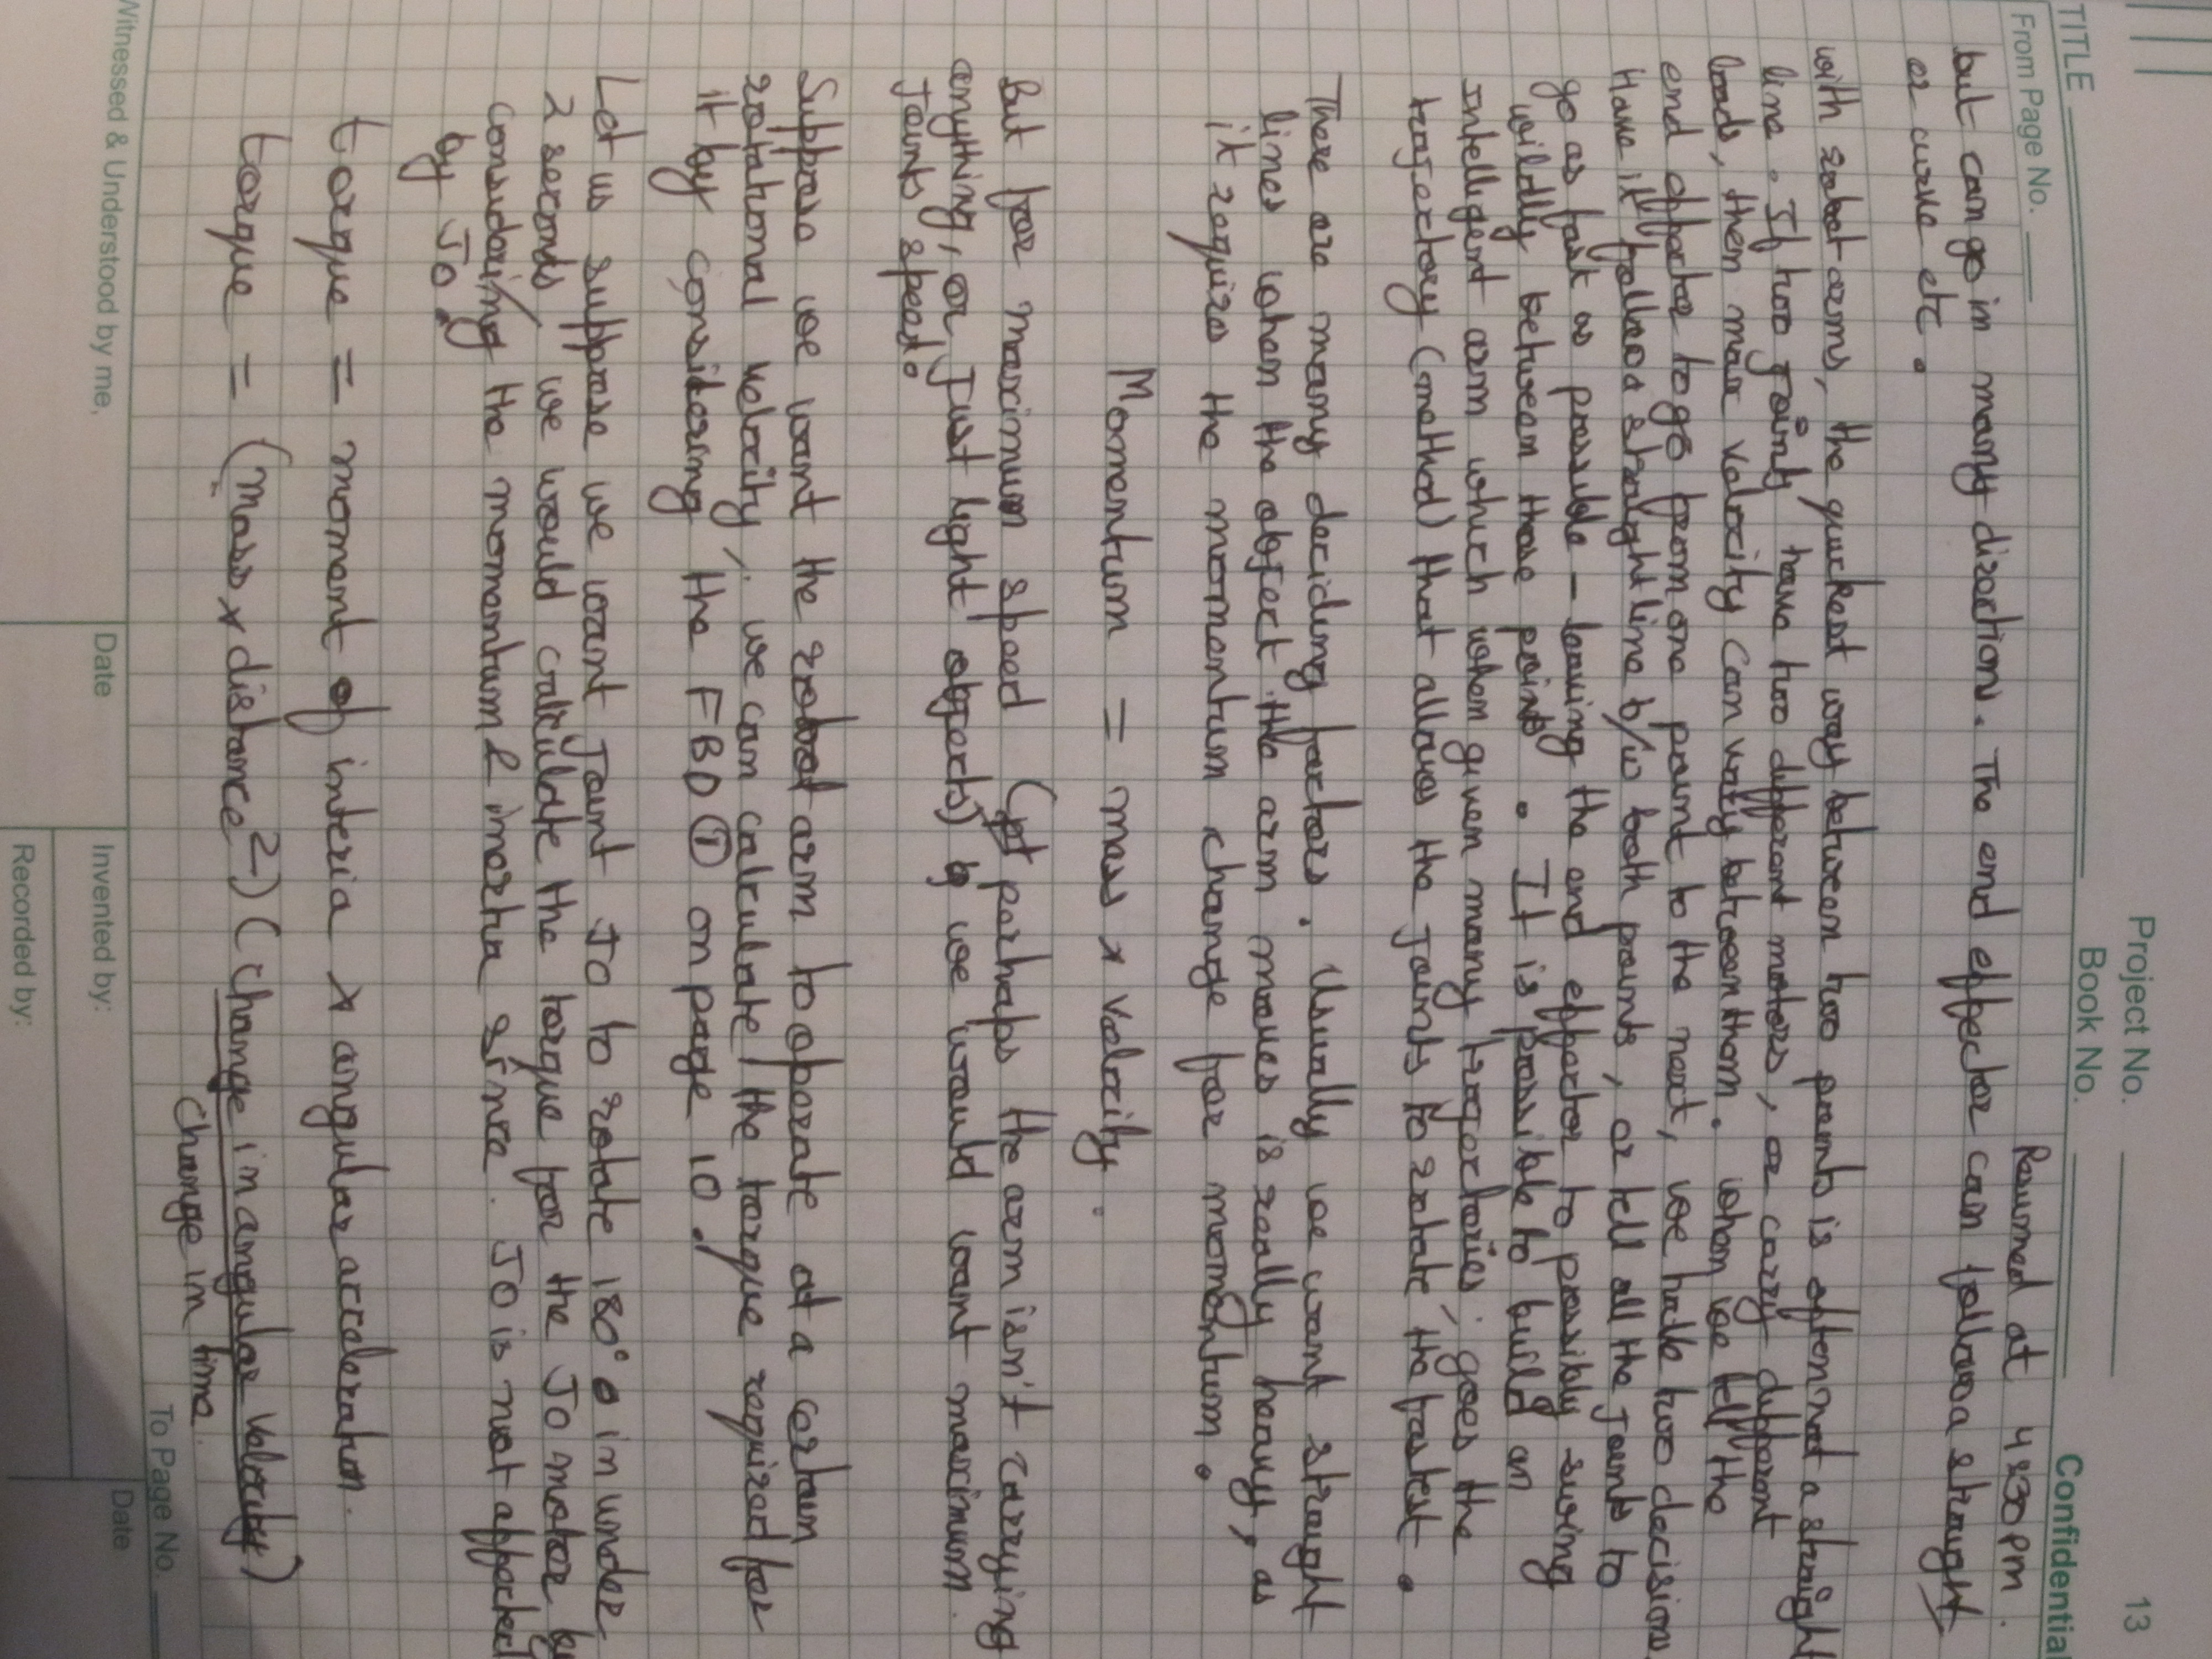 13
Project No.
Book No.
Confidential
TITLE
From Page No.
Resumed at 4:30 pm.
but can go in many direction. The end effector can follow a straight
or curve etc.
with robot arms, the quickest way between two points is often not a straight
line. If two joints have two different motors, or carry different
loads, then max velocity can vary between them. When we tell the
end effector to go from one point to the next, we have two decisions
Have it follow a straight line b/w both points, or tell all the joints to
go as fast as possible - leaving the end effector to possibly swing
wildly between those points. It is possible to build an
intelligent arm which when given many trajectories, goes the
trajectory (method) that allows the joints to rotate the fastest.
There are many deciding factors. Usually we want straight
lines when the object the arm moves is really heavy, as
it requires the momentum change for momentum.
Momentum = mass x velocity.
But for maximum speed (if perhaps the arm isn't carrying
anything, or just light objects) we would want maximum
joints speed.
Suppose we want the robot arm to operate at a certain
rotational velocity, we can calculate the torque required for
it by considering the FBD ① on page 10.
Let us suppose we want joint J0 to rotate 180° in under
2 seconds, we would calculate the torque for the J0 motor by
considering the momentum & inertia since. J0 is not affected
by J0.
torque = moment of interia x angular acceleration.
torque = (mass x distance²) (change in angular velocity)
change in time.
Witnessed & Understood by me,
Date
Invented by:
Recorded by:
Date
To Page No.